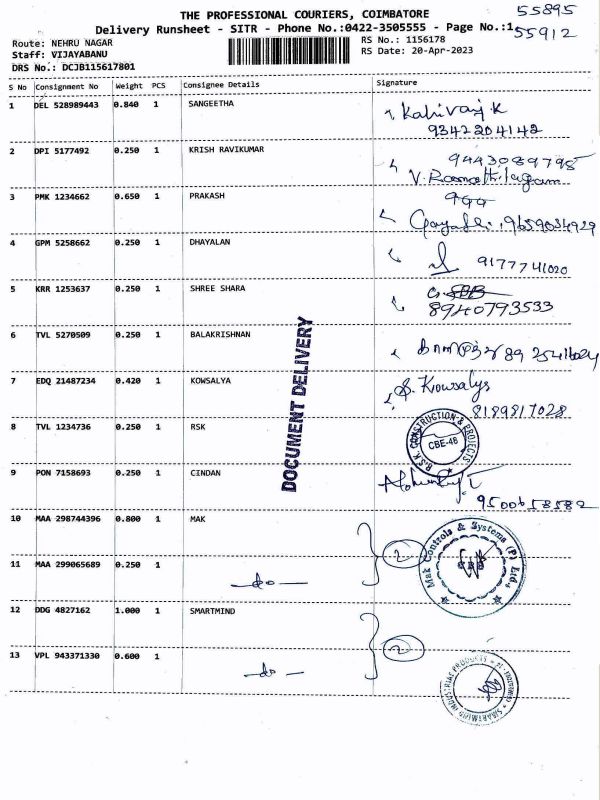 THE PROFESSIONAL COURIERS, COIMBATORE
55895
Delivery Runsheet - SITR - Phone No.:0422-3505555 - Page No.:1
55912
Route: NEHRU NAGAR
RS No.: 1156178
Staff: VIJAYABANU
RS Date: 20-Apr-2023
DRS No.: DCJB115617801
S No Consignment No Weight PCS Consignee Details Signature
1 DEL 528989443 0.840 1 SANGEETHA
9342204142
2 DPI 5177492 0.250 1 KRISH RAVIKUMAR
9443089798
3 PMK 1234662 0.650 1 PRAKASH
9659034929
4 GPM 5258662 0.250 1 DHAYALAN
9177741020
5 KRR 1253637 0.250 1 SHREE SHARA
8940793533
6 TVL 5270509 0.250 1 BALAKRISHNAN
DOCUMENT DELIVERY
7 EDQ 21487234 0.420 1 KOWSALYA
S. Kowsalya
8189817028
8 TVL 1234736 0.250 1 RSK
R.S.K. CONSTRUCTION & PROJECTS
CBE-46
9 PON 7158693 0.250 1 CINDAN
9500658582
10 MAA 298744396 0.800 1 MAK
2
Mak Controls & Systems (P) Ltd.,
CBE
11 MAA 299065689 0.250 1
-do-
12 DDG 4827162 1.000 1 SMARTMIND
2
13 VPL 943371330 0.600 1
-do-
SMARTMIND INDUSTRIAL PRODUCTS